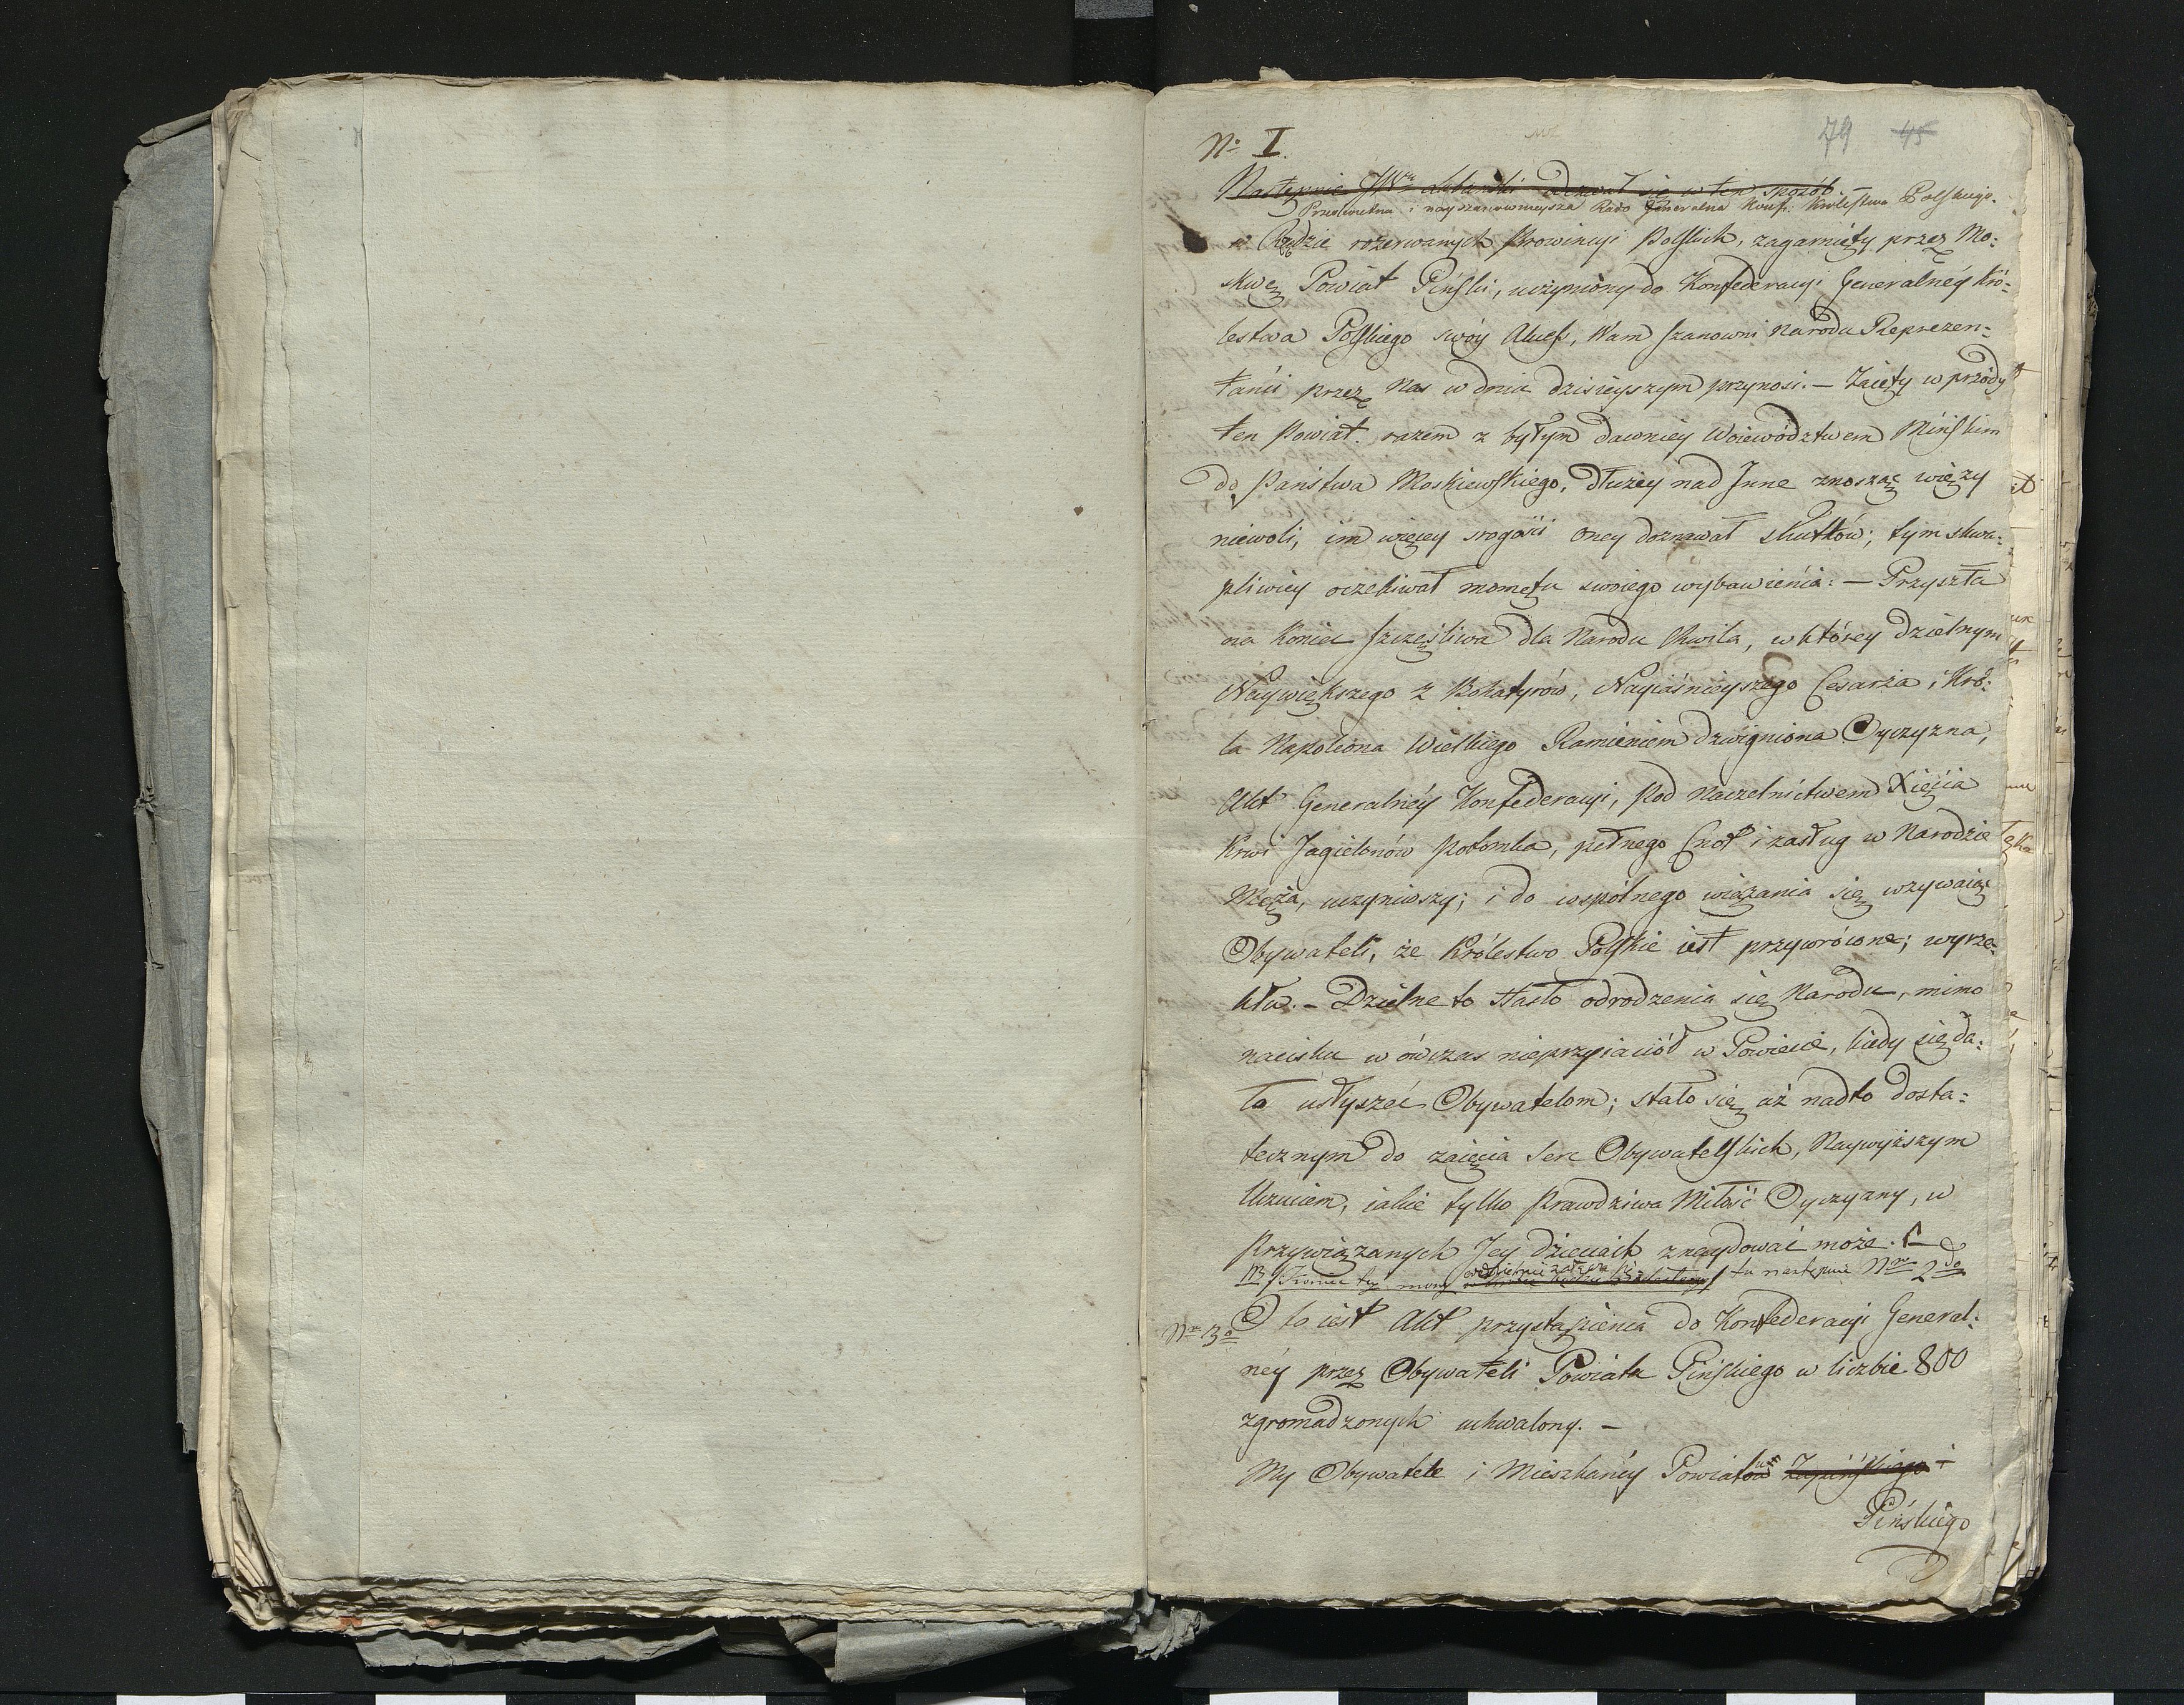 79 45
No I.
Następnie JW. odezwał się w ten sposób
Prześwietna i nayszanownieysza Rado Generalna Konf: Królestwa Polskiego.
w Rzędzie rozerwanych Prowincyi Polskich, zagarnięty przez Mo:
skwę Powiat Piński, uczyniony do Konfederacyi Generalnéy Kró:
lestwa Polskiego swóy Akces, Wam szanowni Narodu Reprezen:
tańci przez Nas w dniu dzisieyszym przynosi. — Zaięty w przódy
ten Powiat razem z byłym dawniey Woiewództwem Mińskim
do Państwa Moskiewskiego, dłużey nad Jnne znosząc więzy
niewoli, im więcey srogości oney doznawał skutków; tym skwa:
pliwiey oczekiwał momętu swoiego wybawienia: — Przyszła
na koniec szczęśliwa dla Narodu Chwila, w którey dzielnym
Naywiększego z Bohatyrów, Nayiaśnieyszego Cesarza i Kró:
la Napoleona Wielkiego Ramieniem dzwigniona Oyczyzna,
Akt Generalnéy Konfederacyi, pod Naczelnictwem Xięcia
Krwi Jagielonów Potomka, pełnego Cnot i zasług w Narodzie
Męża, uczyniwszy; i do wspólnego wiązania się wzywaiąc
Obywateli, że Królestwo Polskie iest przywrócone; wyrze:
kła. — Dzielne to Hasło odrodzenia się Narodu, mimo
nacisku w ówczas nieprzyiaciół w Powiecie, kiedy się da:
ło usłyszeć Obywatelom; stało się aż nadto dosta:
tecznym do zaięcia Serc Obywatelskich, Naywyższym
Uczuciem, iakie tylko Prawdziwa Miłość Oyczyzny, w
Przywiązanych Jey dzieciach znaydować może.
NB Koniec tey mowy tu następuie Nro 2do
Nro 3o O to iest Akt przystąpienia do Konfederacyi General:
néy przez Obywateli Powiatu Pińskiego w liczbie 800
zgromadzonych uchwalony. —
My Obywatele i Mieszkańcy Powiatów Zapińskiego i
Pińskiego